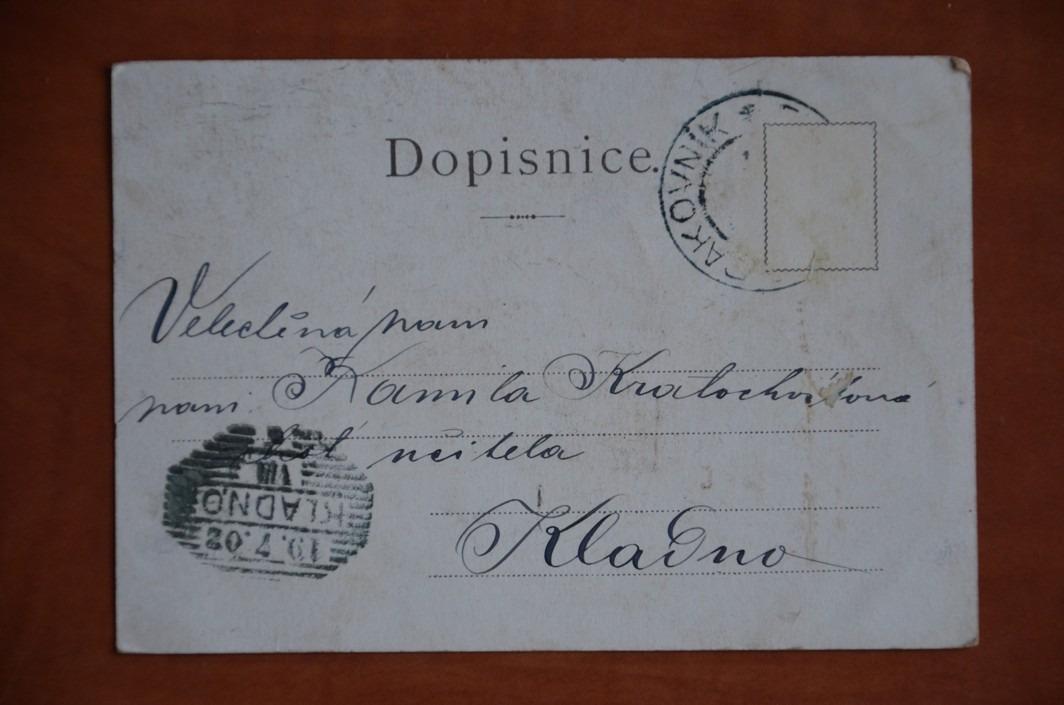 Dopisnice.
RAKOVNÍK *
Velectěná paní
paní Kamila Kratochvílová
učitela
Kladno
VIII
KLADNO
19.7.02